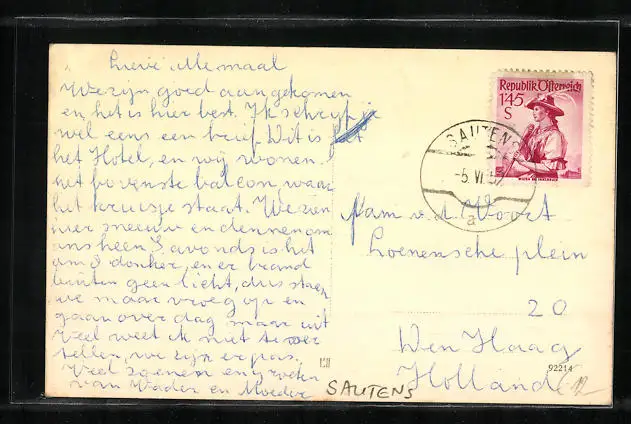 Lieve allemaal
We zijn goed aangekomen
en het is hier best. Ik schrijf je
wel eens een brief. Dit is het
het Hotel, en wij wonen
het bovenste balcon, waar
het kruisje staat. We zien
hier sneeuw en dennen om
ons heen S'avonds is het
om 8 donker, en er brand
buiten geen licht, dus staan
we maar vroeg op en
gaan over dag maar uit
Veel weet ik niet te ver
tellen, we zijn er pas.
Veel zoenen en groeten
van Vader en Moeder
Republik Österreich
1'45
S
SAUTENS
-5. VI. 57
a
Fam v. d. Woort
Loenensche plein
20
Den Haag
Holland
92214
12
SAUTENS